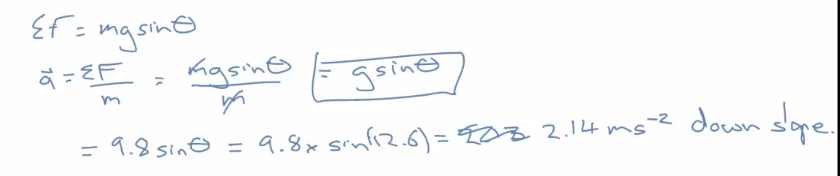 ΣF = mg sinθ
a⃗ = ΣF/m = mg sinθ/m = g sinθ
= 9.8 sinθ = 9.8 x sin(12.6) = 2.14 ms⁻² down slope.